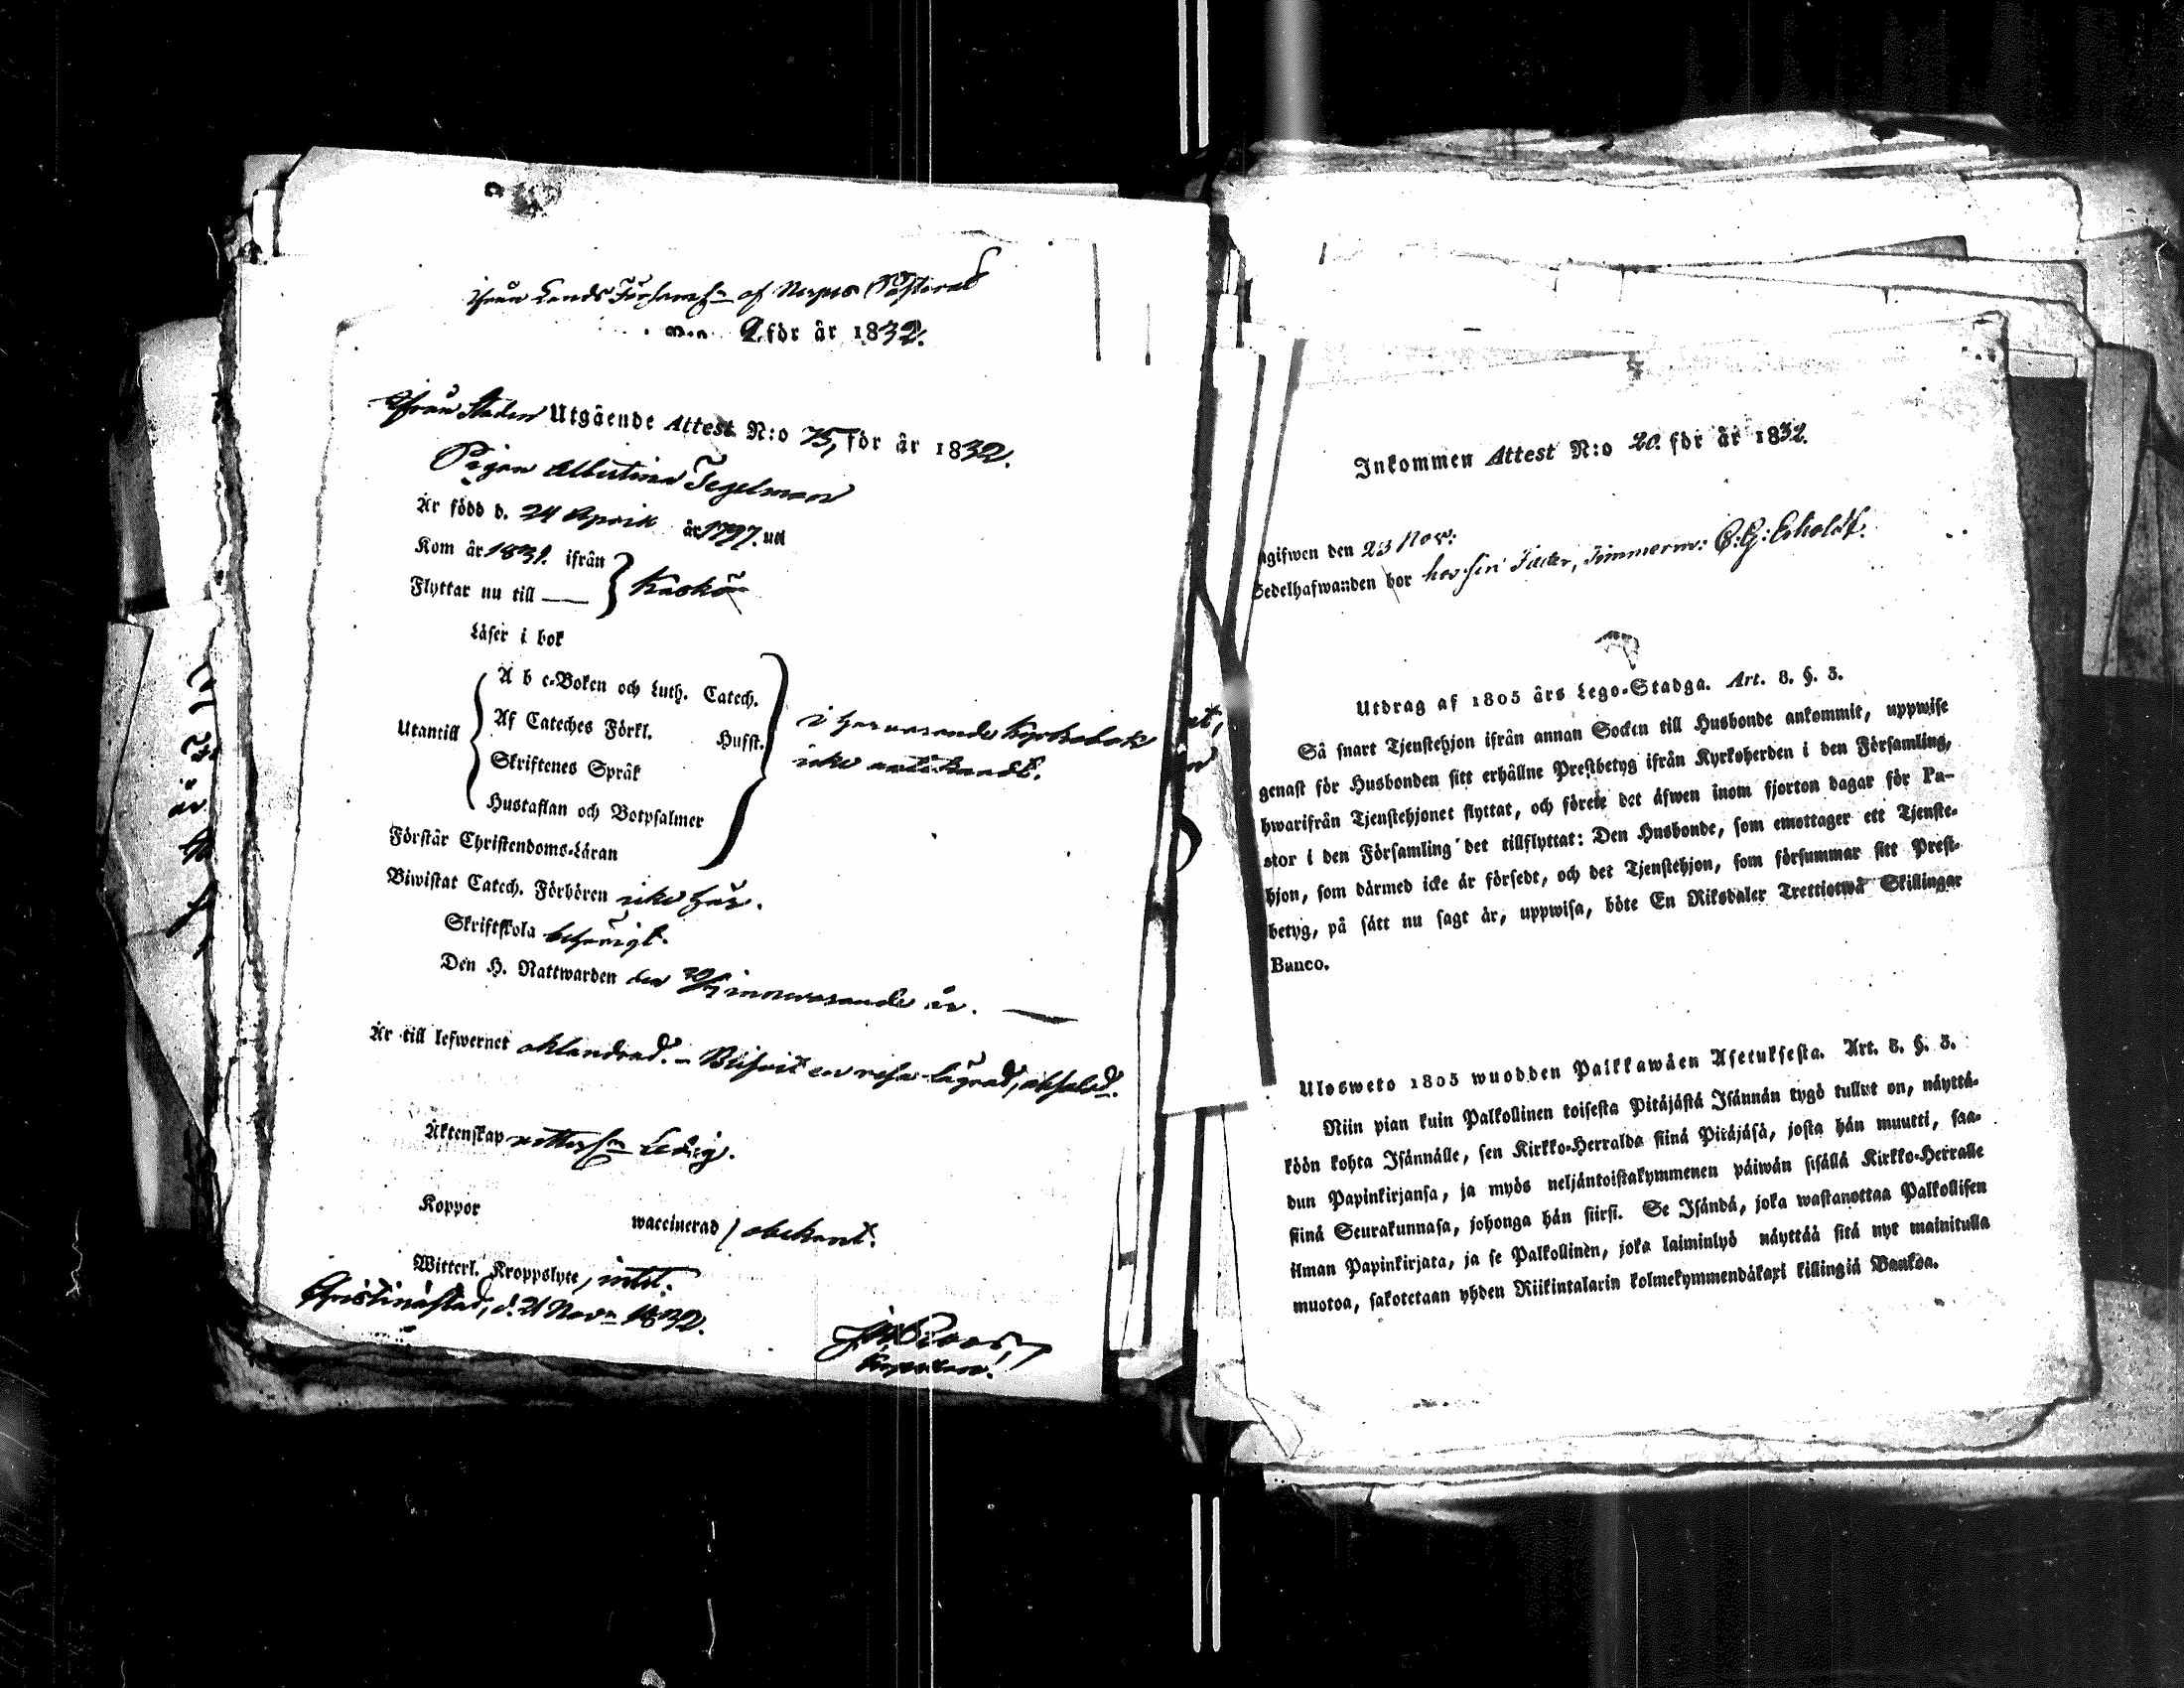 ifrån Lands Församl:n af Nerpes Pastorat
2 för år 1832.
Ifrån Staden Utgående Attest N:o 75, för år 1832.
Pigan Albertina Tegelman
Är född d. 24 April år 1797. uti
Kom år 1831. ifrån
Flyttar nu till —— } Kaskö
Läser i bok
Utantill
A b c-Boken och Luth. Catech.
Af Cateches Förkl. Husst.
Skriftenes Språk
Hustaflan och Botpsalmer
i härvarande Kyrkobok
icke antecknadt.
Förstår Christendoms-Läran
Biwistat Catech. Förhören icke här.
Skriftskola behörigt.
Den H. Nattwarden den innevarande år.
Är till lefwernet oklandrad. – Blifvit en resa lägrad,
Äktenskap ledig.
Koppor
waccinerad / obekant.
Witterl. Kroppslyte, intet.
Christinæstad, d. 21 Nov:r 1832.
Inkommen Attest N:o 20. för år 1832.
ngifwen den 23 Nov:
Sedelhafwanden bor hos sin Fader, Timmerm:
Utdrag af 1805 års Lego-Stadga. Art. 8. §. 3.
Så snart Tjenstehjon ifrån annan Socken till Husbonde ankommit, uppwise
genast för Husbonden sitt erhållne Prestbetyg ifrån Kyrkoherden i den Församling,
hwarifrån Tjenstehjonet flyttat, och förete det äfwen inom fjorton dagar för Pa-
stor i den Församling det tillflyttat: Den Husbonde, som emottager ett Tjenste-
hjon, som därmed icke är försedt, och det Tjenstehjon, som försummar sitt Prest-
betyg, på sätt nu sagt är, uppwisa, böte En Riksdaler Trettiotwå Skillingar
Banco.
Ulosweto 1805 wuodden Palkkawäen Asetuksesta. Art. 8. §. 3.
Niin pian kuin Palkollinen toisesta Pitäjästä Isännän tygö tullut on, näyttä-
köön kohta Isännälle, sen Kirkko-Herralda siinä Pitäjäsä, josta hän muutti, saa-
dun Papinkirjansa, ja myös neljäntoistakymmenen päiwän sisällä Kirkko-Herralle
siinä Seurakunnasa, johonga hän siirsi. Se Isändä, joka wastanottaa Palkollisen
ilman Papinkirjata, ja se Palkollinen, joka laiminlyö näyttää sitä nyt mainitulla
muotoa, sakotetaan yhden Riikintalarin kolmekymmendäkaxi killingiä Bankoa.